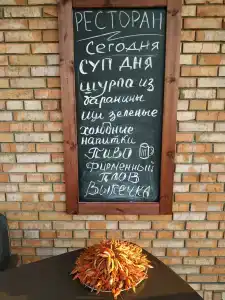 РЕСТОРАН
Сегодня
СУП ДНЯ
шурпа из
баранины
щи зеленые
холодные
напитки
ПИВО
Фирменный
ПЛОВ
ВЫПЕЧКА